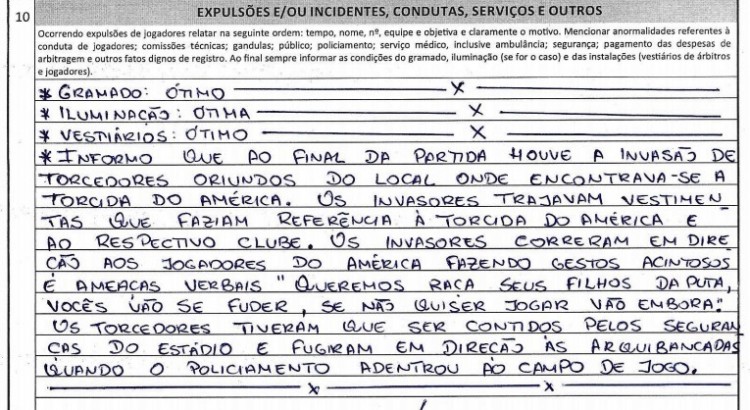 10
EXPULSÕES E/OU INCIDENTES, CONDUTAS, SERVIÇOS E OUTROS
Ocorrendo expulsões de jogadores relatar na seguinte ordem: tempo, nome, nº, equipe e objetiva e claramente o motivo. Mencionar anormalidades referentes à
conduta de jogadores; comissões técnicas; gandulas; público; policiamento; serviço médico, inclusive ambulância; segurança; pagamento das despesas de
arbitragem e outros fatos dignos de registro. Ao final sempre informar as condições do gramado, iluminação (se for o caso) e das instalações (vestiários de árbitros
e jogadores).
* GRAMADO: ÓTIMO ——— X ———
* ILUMINAÇÃO: ÓTIMA ——— X ———
* VESTIÁRIOS: ÓTIMO ——— X ———
* INFORMO QUE AO FINAL DA PARTIDA HOUVE A INVASÃO DE
TORCEDORES ORIUNDOS DO LOCAL ONDE ENCONTRAVA-SE A
TORCIDA DO AMÉRICA. OS INVASORES TRAJAVAM VESTIMEN
TAS QUE FAZIAM REFERÊNCIA À TORCIDA DO AMÉRICA E
AO RESPECTIVO CLUBE. OS INVASORES CORRERAM EM DIRE
ÇÃO AOS JOGADORES DO AMÉRICA FAZENDO GESTOS ACINTOSOS
E AMEAÇAS VERBAIS "QUEREMOS RAÇA SEUS FILHOS DA PUTA,
VOCÊS VÃO SE FUDER, SE NÃO QUISER JOGAR VÃO EMBORA."
OS TORCEDORES TIVERAM QUE SER CONTIDOS PELOS SEGURAN
ÇAS DO ESTÁDIO E FUGIRAM EM DIREÇÃO ÀS ARQUIBANCADAS
QUANDO O POLICIAMENTO ADENTROU AO CAMPO DE JOGO.
——— X ——— X ———